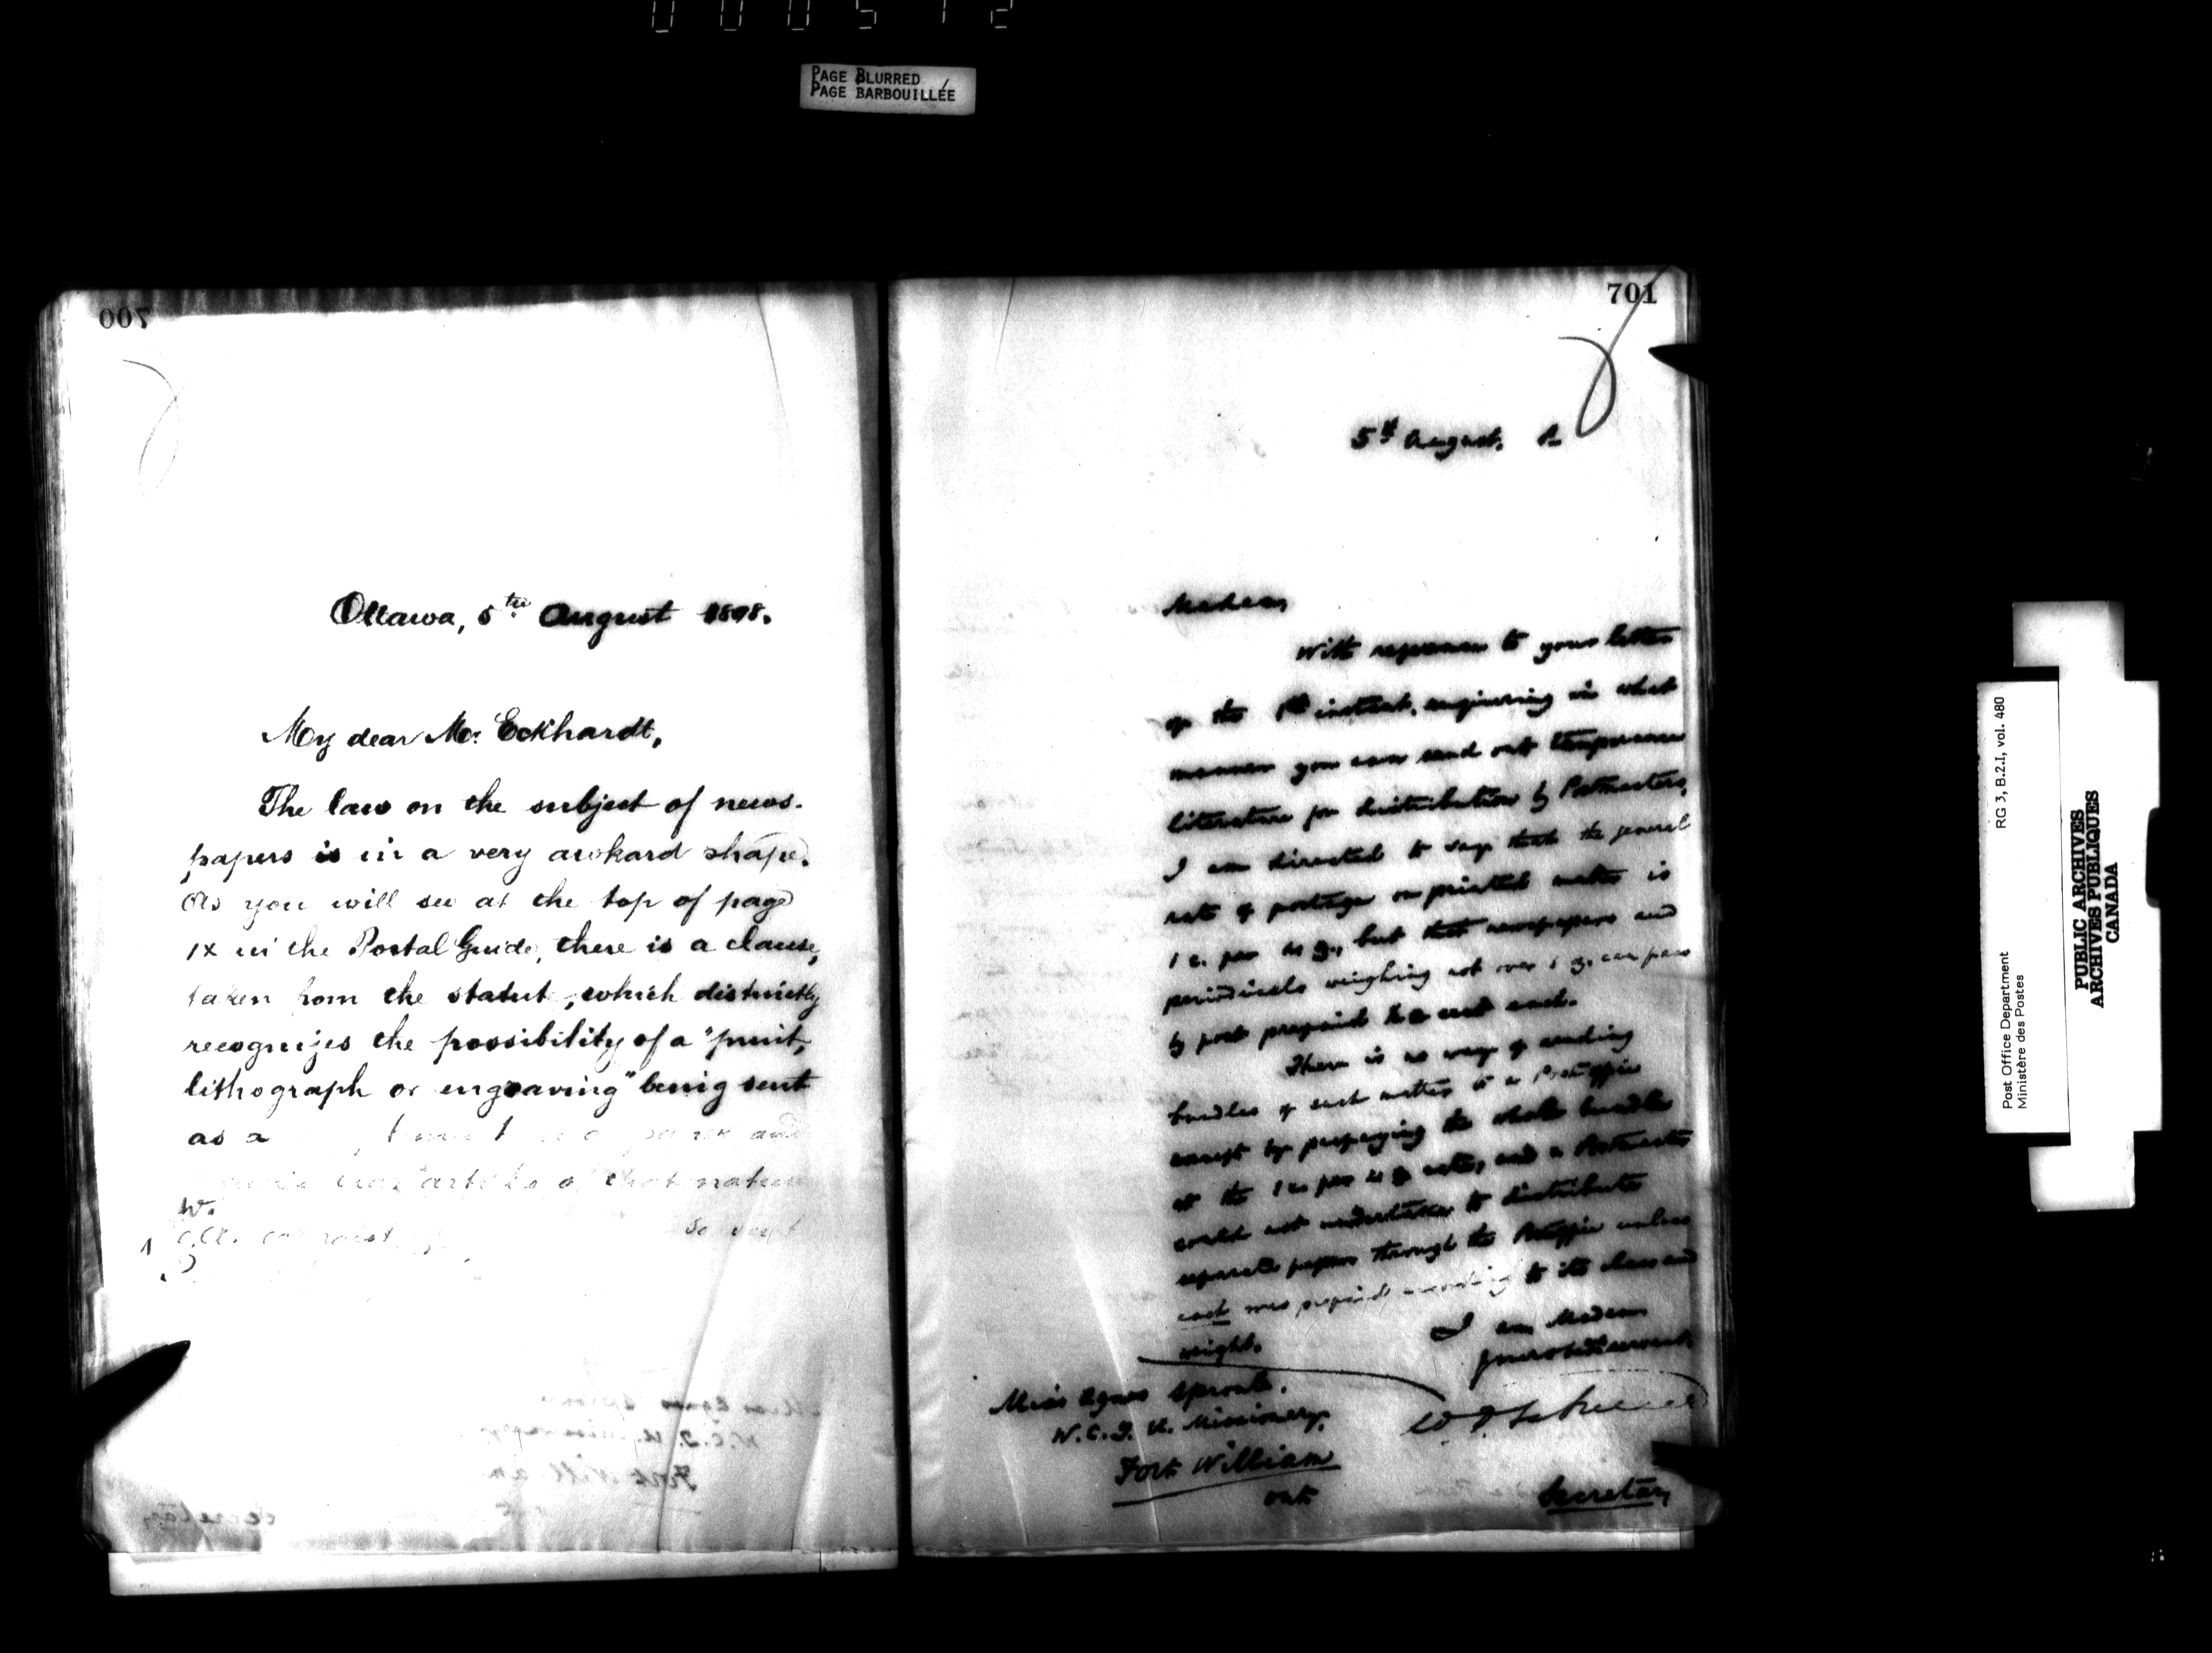 000512
PAGE BLURRED
PAGE BARBOUILLÉE
700
Ottawa, 5th August 1898.
My dear Mr. Eckhardt,
The law on the subject of news-
papers is in a very awkard shape.
As you will see at the top of page
IX in the Postal Guide, there is a clause,
taken from the statut, which distinctly
recognizes the possibility of a "print,
lithograph or engraving" being sent
as a
article of that nature
W.
701
5th August.
Madam,
With reference to your letter
of the 1st instant, enquiring in what
manner you can send out temperance
literature for distribution by Postmasters,
I am directed to say that the general
rate of postage on printed matter is
1 c. per 4 oz., but that newspapers and
periodicals weighing not over 1 oz. can pass
by post prepaid ½ a cent each.
There is no way of sending
bundles of such matter to a Post office
except by prepaying the whole bundle
at the 1 c. per 4 oz rate, and a Postmaster
could not undertake to distribute
separate papers through the Post office unless
each was prepaid according to its class and
weight.
I am Madam
Your obedt servant.
Secretary
Miss Agnes Sproule,
W.C.T.U. Missionary,
Fort William
Ont
Post Office Department
Ministère des Postes
RG 3, B.2.I, vol. 480
PUBLIC ARCHIVES
ARCHIVES PUBLIQUES
CANADA